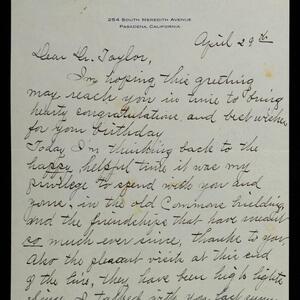 254 South Meredith Avenue
Pasadena, California
April 29th
Dear Dr. Taylor,
I'm hoping this greeting
may reach you in time to bring
hearty congratulations and best wishes
for your birthday
Today I'm thinking back to the
happy, helpful time it was my
privilege to spend with you and
yours, in the old Commons building,
and the friendships that have meant
so much ever since, thanks to you.
Also the pleasant visits at this end
of the line, they have been high lights
since I talked with you last